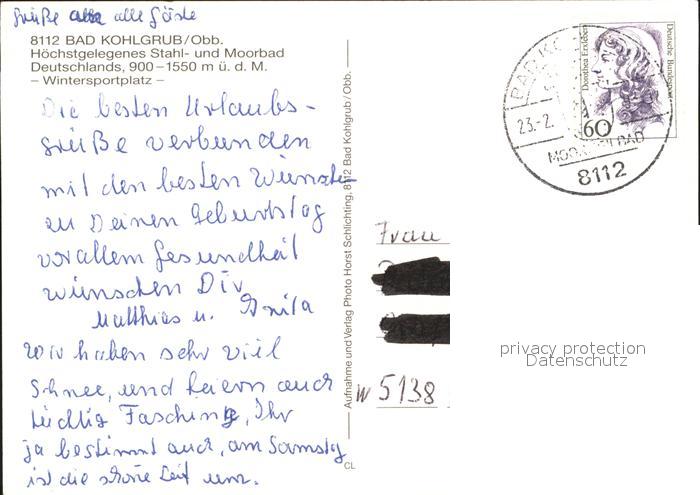 Grüße an alle Gäste
8112 BAD KOHLGRUB/Obb.
Höchstgelegenes Stahl- und Moorbad
Deutschlands, 900–1550 m ü. d. M.
– Wintersportplatz –
Die besten Urlaubs-
grüße verbunden
mit den besten Wünschen
zu Deinen Geburtstag
vor allem Gesundheit
wünschen Dir
Matthias u. Anita
Wir haben sehr viel
Schnee, und feiern auch
tüchtig Fasching, Ihr
ja bestimmt auch, am Samstag
ist die schöne Zeit um.
CL
Aufnahme und Verlag Photo Horst Schlichting, 8112 Bad Kohlgrub/Obb.
Dorothea Erxleben
Deutsche Bundespost
60
BAD KO
23.-2.
MOORHEILBAD
8112
Frau
W 5138
privacy protection
Datenschutz